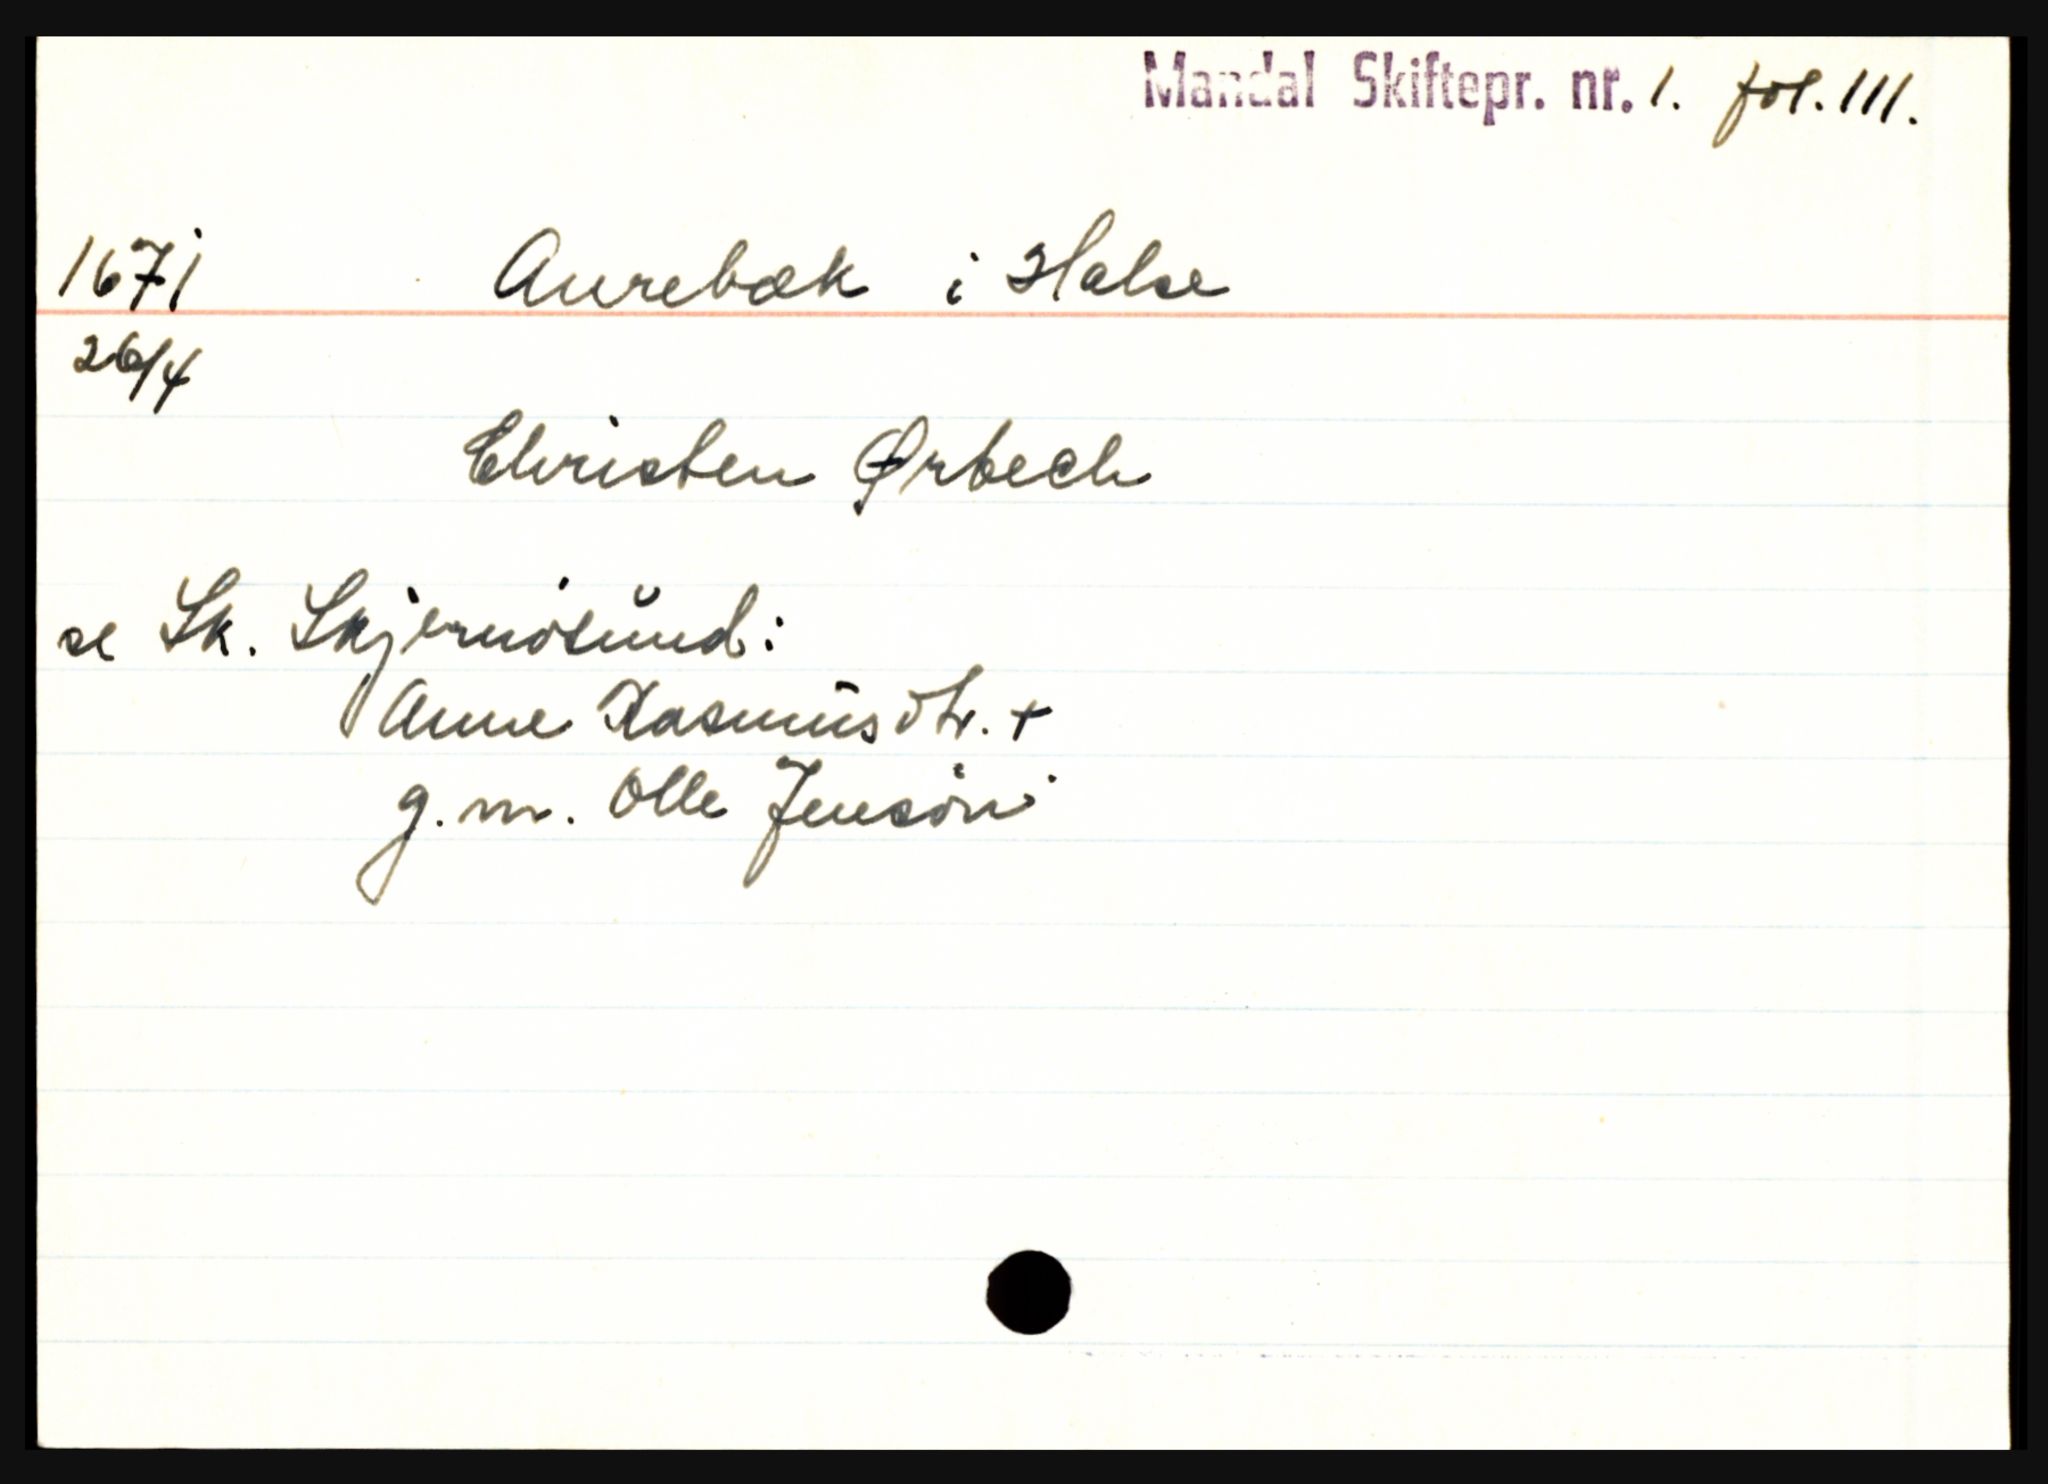 Mandal Skiftepr. nr. 1. fol. 111.
1671 Aurebæk i Halse
26/4
Christen Ørbech
se Sk. Skjernøsund:
Anne Rasmusdtr. +
g.m. Olle Jensøn